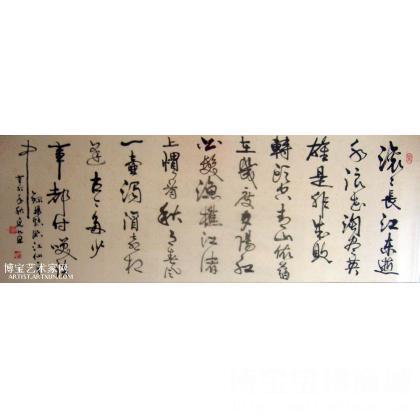 滚滚長江東逝
水浪花淘尽英
雄是非成败
轉頭空青山依舊
在幾度夕陽红
白髮漁樵江渚
上惯看秋月春风
一壶濁酒喜相
逢古今多少
事都付笑谈
中
博宝艺术家网